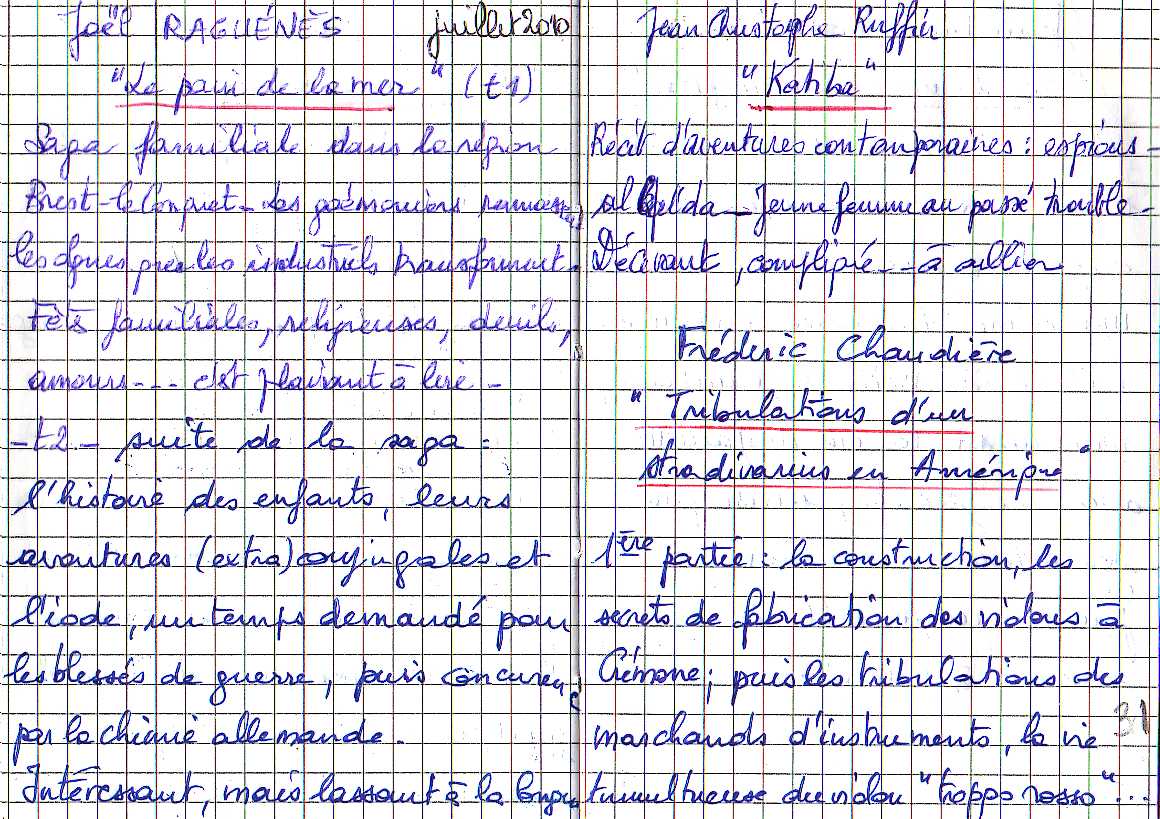 Joël RAGUÉNÈS juillet 2010
"Le pain de la mer" (t1)
Saga familiale dans la région
Brest - le Conquet - Les goémoniers ramassent
les algues que les industriels transforment.
Fêtes familiales, religieuses, deuils,
amours --- c'est plaisant à lire -
- t2 - suite de la saga :
l'histoire des enfants, leurs
aventures (extra) conjugales et
l'iode, un temps demandé pour
les blessés de guerre, puis concurencé
par la chimie allemande.
Intéressant, mais lassant à la longue
Jean Christophe Ruffin
"Katiba"
Récit d'aventures contemporaines : espions -
al Qaïda - jeune femme au passé trouble -
Décevant, compliqué -- à oublier
Frédéric Chaudière
"Tribulations d'un
stradivarius en Amérique"
1ère partie : la construction, les
secrets de fabrication des violons à
Crémone ; puis les tribulations des
marchands d'instruments, la vie
tumultueuse du violon "troppo rosso" ...
31